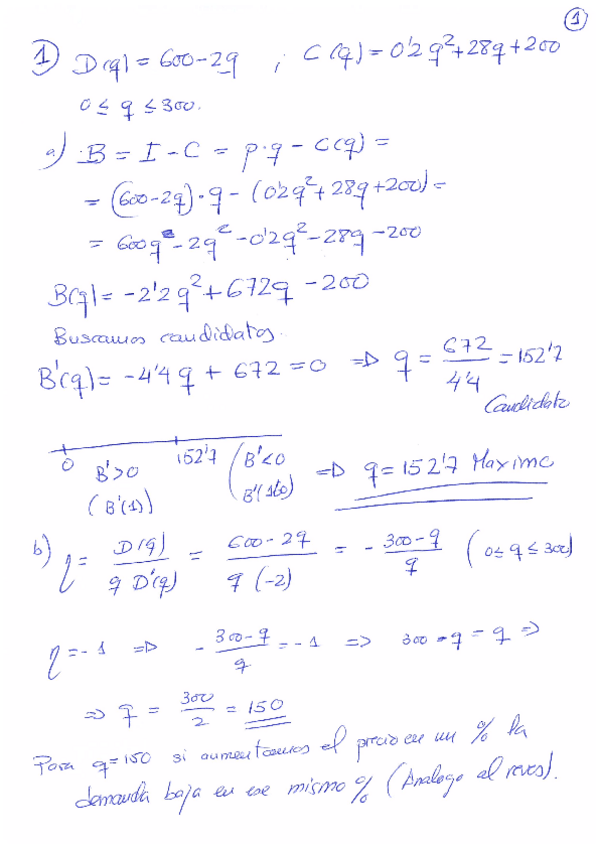 1
1) D(q) = 600-2q ; C(q) = 0'2q²+28q+200
0 ≤ q ≤ 300.
a) B = I - C = p·q - C(q) =
= (600-2q)·q - (0'2q²+28q+200) =
= 600q - 2q² - 0'2q² - 28q - 200
B(q) = -2'2q² + 672q - 200
Buscamos candidatos.
B'(q) = -4'4q + 672 = 0 => q = 672/4'4 = 152'7
Candidato
0 B'>0 (B'(1)) 152'7 (B'<0 B'(160)) => q = 152'7 Maximo
b) η = D(q)/(q D'(q)) = (600-2q)/(q(-2)) = - (300-q)/q (0 ≤ q ≤ 300)
η = -1 => - (300-q)/q = -1 => 300 - q = q =>
=> q = 300/2 = 150
Para q=150 si aumentamos el precio en un % la
demanda baja en ese mismo % (Analogo al reves).